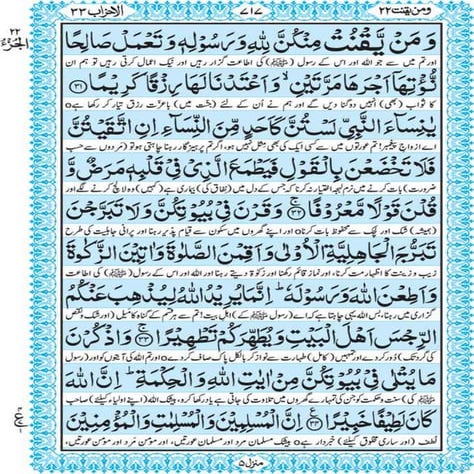 ومن یقنت ۲۲ ۷۱۷ الاحزاب ۳۳
۲۲ الجزء
وَ مَنْ يَّقْنُتْ مِنْكُنَّ لِلّٰهِ وَ رَسُوْلِهٖ وَ تَعْمَلْ صَالِحًا
اور تم میں سے جو اللہ اور اس کے رسول (ﷺ) کی اطاعت گزار رہیں اور نیک اعمال کرتی رہیں تو ہم ان
نُّؤْتِهَاۤ اَجْرَهَا مَرَّتَيْنِ ۙ وَ اَعْتَدْنَا لَهَا رِزْقًا كَرِيْمًا ﴿۳۱﴾
کا ثواب (بھی) انہیں دوگنا دیں گے اور ہم نے اُن کے لئے (جنت میں) باعزت رزق تیار کر رکھا ہے
يٰنِسَآءَ النَّبِيِّ لَسْتُنَّ كَاَحَدٍ مِّنَ النِّسَآءِ اِنِ اتَّقَيْتُنَّ
اے ازواجِ پیغمبر! تم عورتوں میں سے کسی ایک کی بھی مثل نہیں ہو، اگر تم پرہیزگار رہنا چاہتی ہو تو (مَردوں سے حسبِ
فَلَا تَخْضَعْنَ بِالْقَوْلِ فَيَطْمَعَ الَّذِيْ فِيْ قَلْبِهٖ مَرَضٌ وَّ
ضرورت) بات کرنے میں نرم لہجہ اختیار نہ کرنا کہ جس کے دل میں (نِفاق کی) بیماری ہے (کہیں) وہ لالچ کرنے لگے اور
قُلْنَ قَوْلًا مَّعْرُوْفًا ﴿۳۲﴾ وَ قَرْنَ فِيْ بُيُوْتِكُنَّ وَ لَا تَبَرَّجْنَ
(ہمیشہ) شک اور لچک سے محفوظ بات کرنا اور اپنے گھروں میں سکون سے قیام پذیر رہنا اور پرانی جاہلیت کی طرح
تَبَرُّجَ الْجَاهِلِيَّةِ الْاُوْلٰى وَ اَقِمْنَ الصَّلٰوةَ وَ اٰتِيْنَ الزَّكٰوةَ
زیب و زینت کا اظہار مت کرنا، اور نماز قائم رکھنا اور زکوٰۃ دیتے رہنا اور اللہ اور اس کے رسول (ﷺ) کی اطاعت
وَ اَطِعْنَ اللّٰهَ وَ رَسُوْلَهٗ ؕ اِنَّمَا يُرِيْدُ اللّٰهُ لِيُذْهِبَ عَنْكُمُ
گزاری میں رہنا، بس اللہ یہی چاہتا ہے کہ اے (رسول ﷺ کے) اہلِ بیت! تم سے ہر قسم کے گناہ کا میل (اور شک و نقص
الرِّجْسَ اَهْلَ الْبَيْتِ وَ يُطَهِّرَكُمْ تَطْهِيْرًا ﴿۳۳﴾ وَ اذْكُرْنَ
کی گرد تک) دُور کر دے اور تمہیں (کامل) طہارت سے نواز کر بالکل پاک صاف کر دے اور تم اللہ کی آیتوں کو اور (رسول
مَا يُتْلٰى فِيْ بُيُوْتِكُنَّ مِنْ اٰيٰتِ اللّٰهِ وَ الْحِكْمَةِ ؕ اِنَّ اللّٰهَ
(ﷺ) کی سنت و حکمت کو جن کی تمہارے گھروں میں تلاوت کی جاتی ہے یاد رکھا کرو، بیشک اللہ (اپنے اولیاء کیلئے) صاحبِ
كَانَ لَطِيْفًا خَبِيْرًا ﴿۳۴﴾ اِنَّ الْمُسْلِمِيْنَ وَ الْمُسْلِمٰتِ وَ الْمُؤْمِنِيْنَ
لطف (اور ساری مخلوق کیلئے) خبردار ہے بیشک مسلمان مرد اور مسلمان عورتیں، اور مومن مَرد اور مومن عورتیں،
منزل ۵